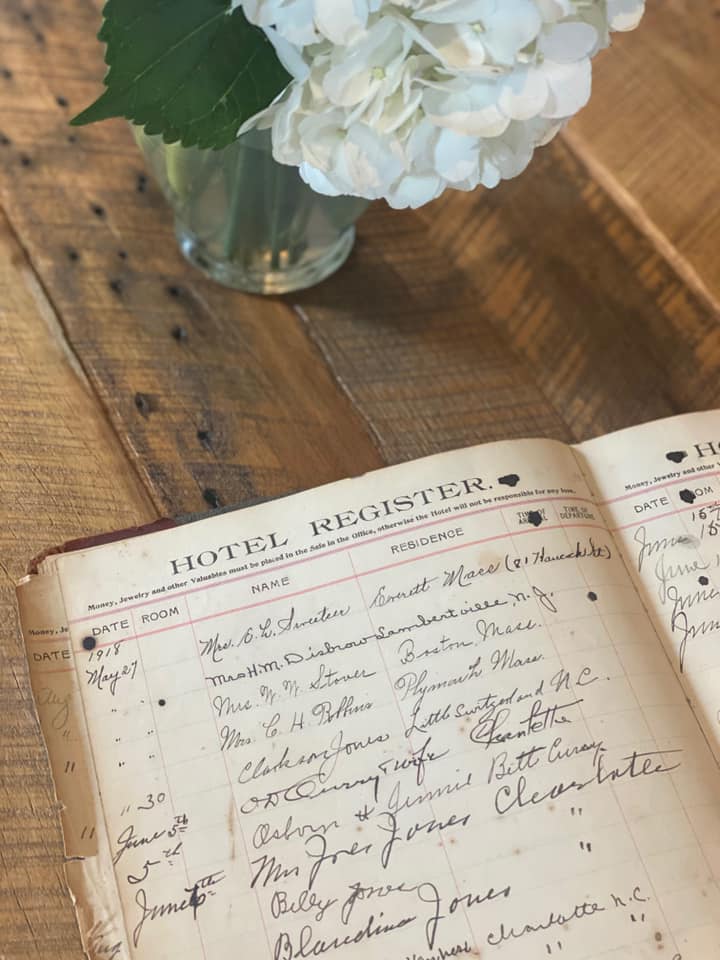 HOTEL REGISTER.
Money, Jewelry and other Valuables must be placed in the Safe in the Office, otherwise the Hotel will not be responsible for any loss.
DATE ROOM NAME RESIDENCE TIME OF ARRIVAL TIME OF DEPARTURE
1918
May 27 Mrs. Everett Mass (81 Hancock St)
" " Mrs H. M. Disbrow Lambertville, N. J.
" " Mrs. W. W. Stover Boston, Mass.
" " Mrs. C. H. Robbins Plymouth Mass.
" 30 Clarkson Jones Little Switzerland N.C.
June 5th Curry & wife Charlotte
5th Osborn & Jimmie Bett Curry
June 6th Mrs Jones Charlotte
Billy Jones "
Blandina Jones "
Charlotte N.C.
" "
Money, Je
DATE
Aug
"
"
"
Aug
HO
Money, Jewelry and other
DATE ROOM
June 15
June 15
June
June